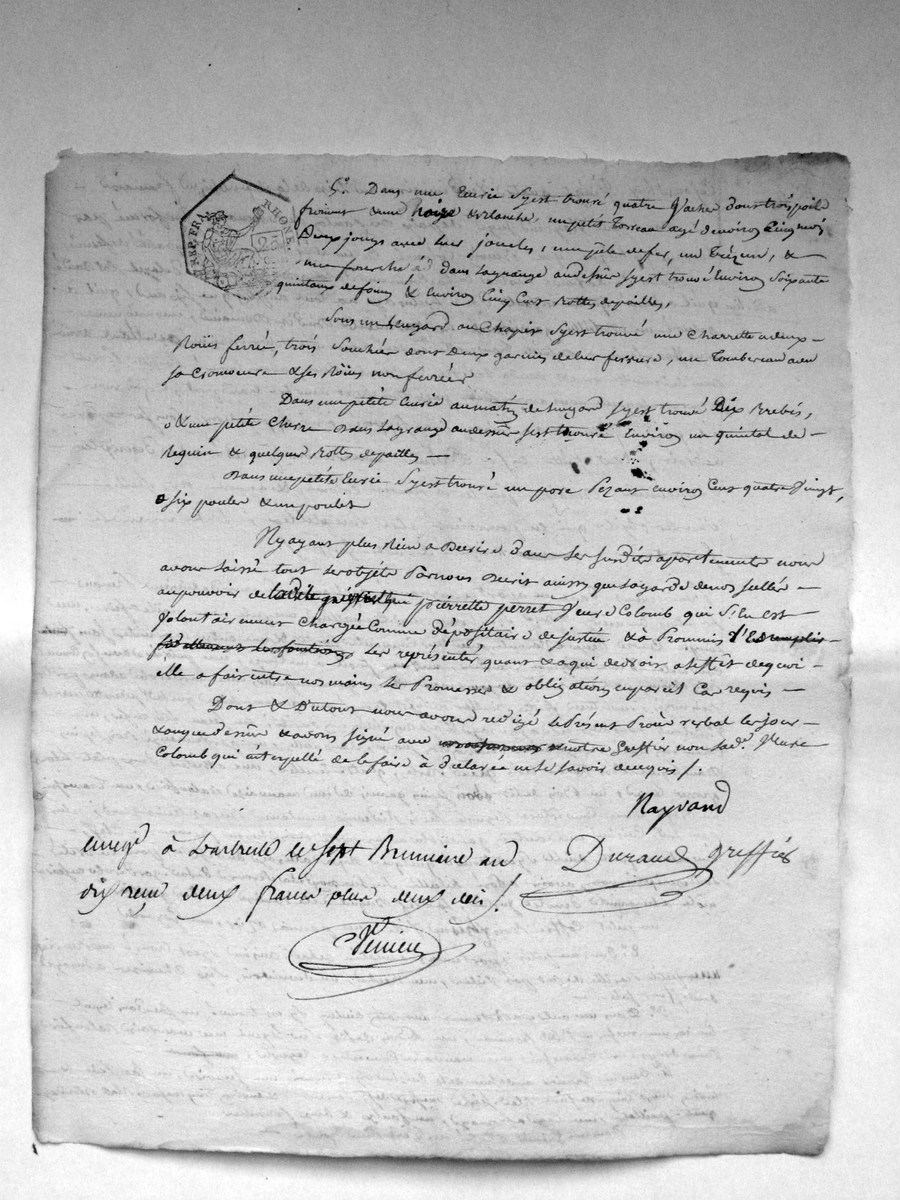 REP. FRA. RHONE. 25
5º. Dans une Eurie Syest trouvé quatre Vaches dont trois poil
froment & une noire & blanche, un petit Toreau agé denviron Cinq mois
Deux jougs avec Les joucles, une pèle de fer, un Trézeu, &
une fourche id. dans Lagrange audessus syest trouvé Environ Soixante
quintaux de foins & Environ Cinq Cens Bottes depailles,
Sous un hengard ou Chapit Syest trouvé une Charrette adeux
Roües ferré, trois dont deux garnies deleur ferrure, un Tombereau avec
sa & ses Roües non ferrées
Dans une petite Eurie aumatin de hengard syest trouvé Dix Brebis,
& une petite Chevre Dans Lagrange audessus sest trouvé Environ un quintal de
Reguin & quelques Bottes depailles
Dans une petite Eurie Syest trouvé un porc Pezant environ Cent quatre Vingt,
six poules & un poulet
Nyayant plus Rien a Decrire dans Les susdits apartements nous
avons saissi tout les objets Parnous Decrit ainssy que Lagarde denos sellés
aupouvoir de pierrette perret Veuve Colomb qui S'En est
Volontairement Chargée Comme dépositaire de justice & a Promis
Les représentés quant & a qui de droit a leffet de quoi
élle a fait entre nos mains Les Promesses & obligations enpareil Cas requis
Dont & Dutout nous avons redigé le Présent Procès verbal les jour
& an que dessus & avons signé avec notre Greffier non lad. Veuve
Colomb qui interpellé de le faire à déclarée ne le savoir de ce quis /.
Raynaud
Durand Greffier
enreg. à le sept Brumaire an
dix reçu deux francs plus deux déci /.